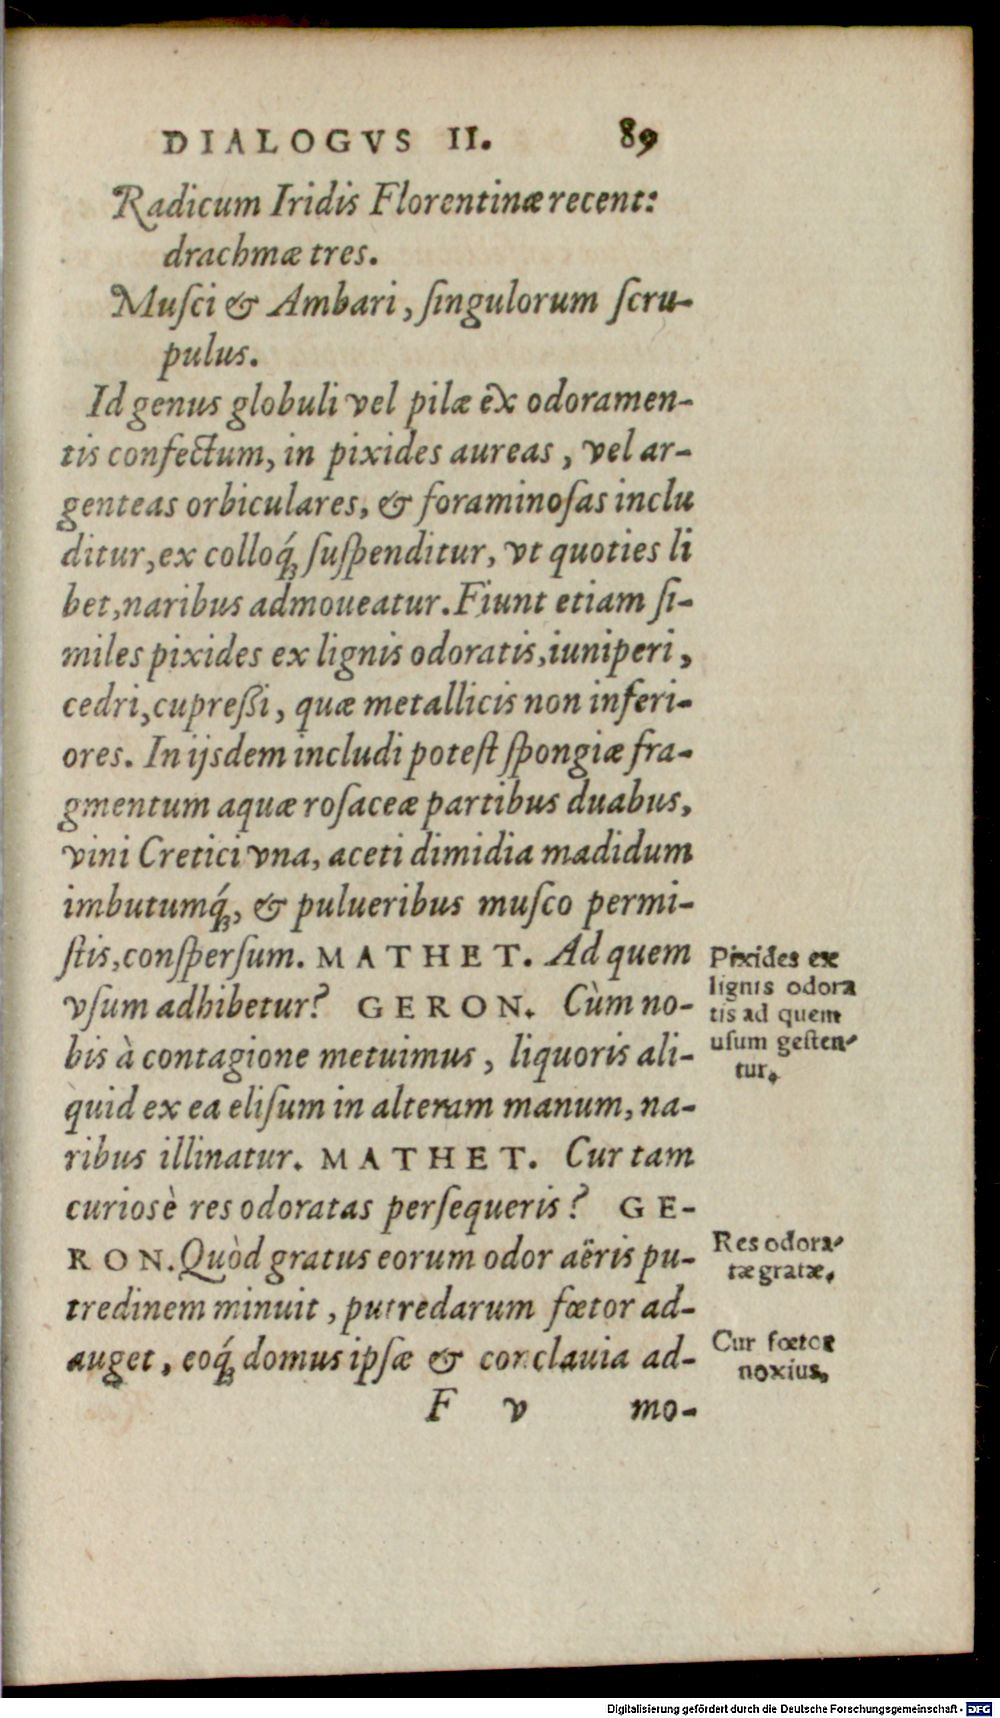 DIALOGVS II. 89
Radicum Iridis Florentinæ recent:
drachmæ tres.
Muſci & Ambari, ſingulorum ſcru-
pulus.
Id genus globuli vel pilæ ex odoramen-
tis confectum, in pixides aureas, vel ar-
genteas orbiculares, & foraminoſas inclu
ditur, ex colloq́ꝫ ſuſpenditur, vt quoties li
bet, naribus admoueatur. Fiunt etiam ſi-
miles pixides ex lignis odoratis, iuniperi,
cedri, cupreßi, quæ metallicis non inferi-
ores. In ijsdem includi poteſt ſpongiæ fra-
gmentum aquæ roſaceæ partibus duabus,
vini Cretici vna, aceti dimidia madidum
imbutumq́ꝫ, & pulueribus muſco permi-
ſtis, conſperſum. MATHET. Ad quem
vſum adhibetur? GERON. Cùm no-
bis à contagione metuimus, liquoris ali-
quid ex ea eliſum in alteram manum, na-
ribus illinatur. MATHET. Cur tam
curiosè res odoratas perſequeris? GE-
RON. Quòd gratus eorum odor aëris pu-
tredinem minuit, putredarum fœtor ad-
auget, eoq́ꝫ domus ipſæ & conclauia ad-
F v mo-
Pixides ex
lignis odora
tis ad quem
uſum geſten-
tur.
Res odora-
tæ gratæ.
Cur fœtor
noxius.
Digitalisierung gefördert durch die Deutsche Forschungsgemeinschaft - DFG